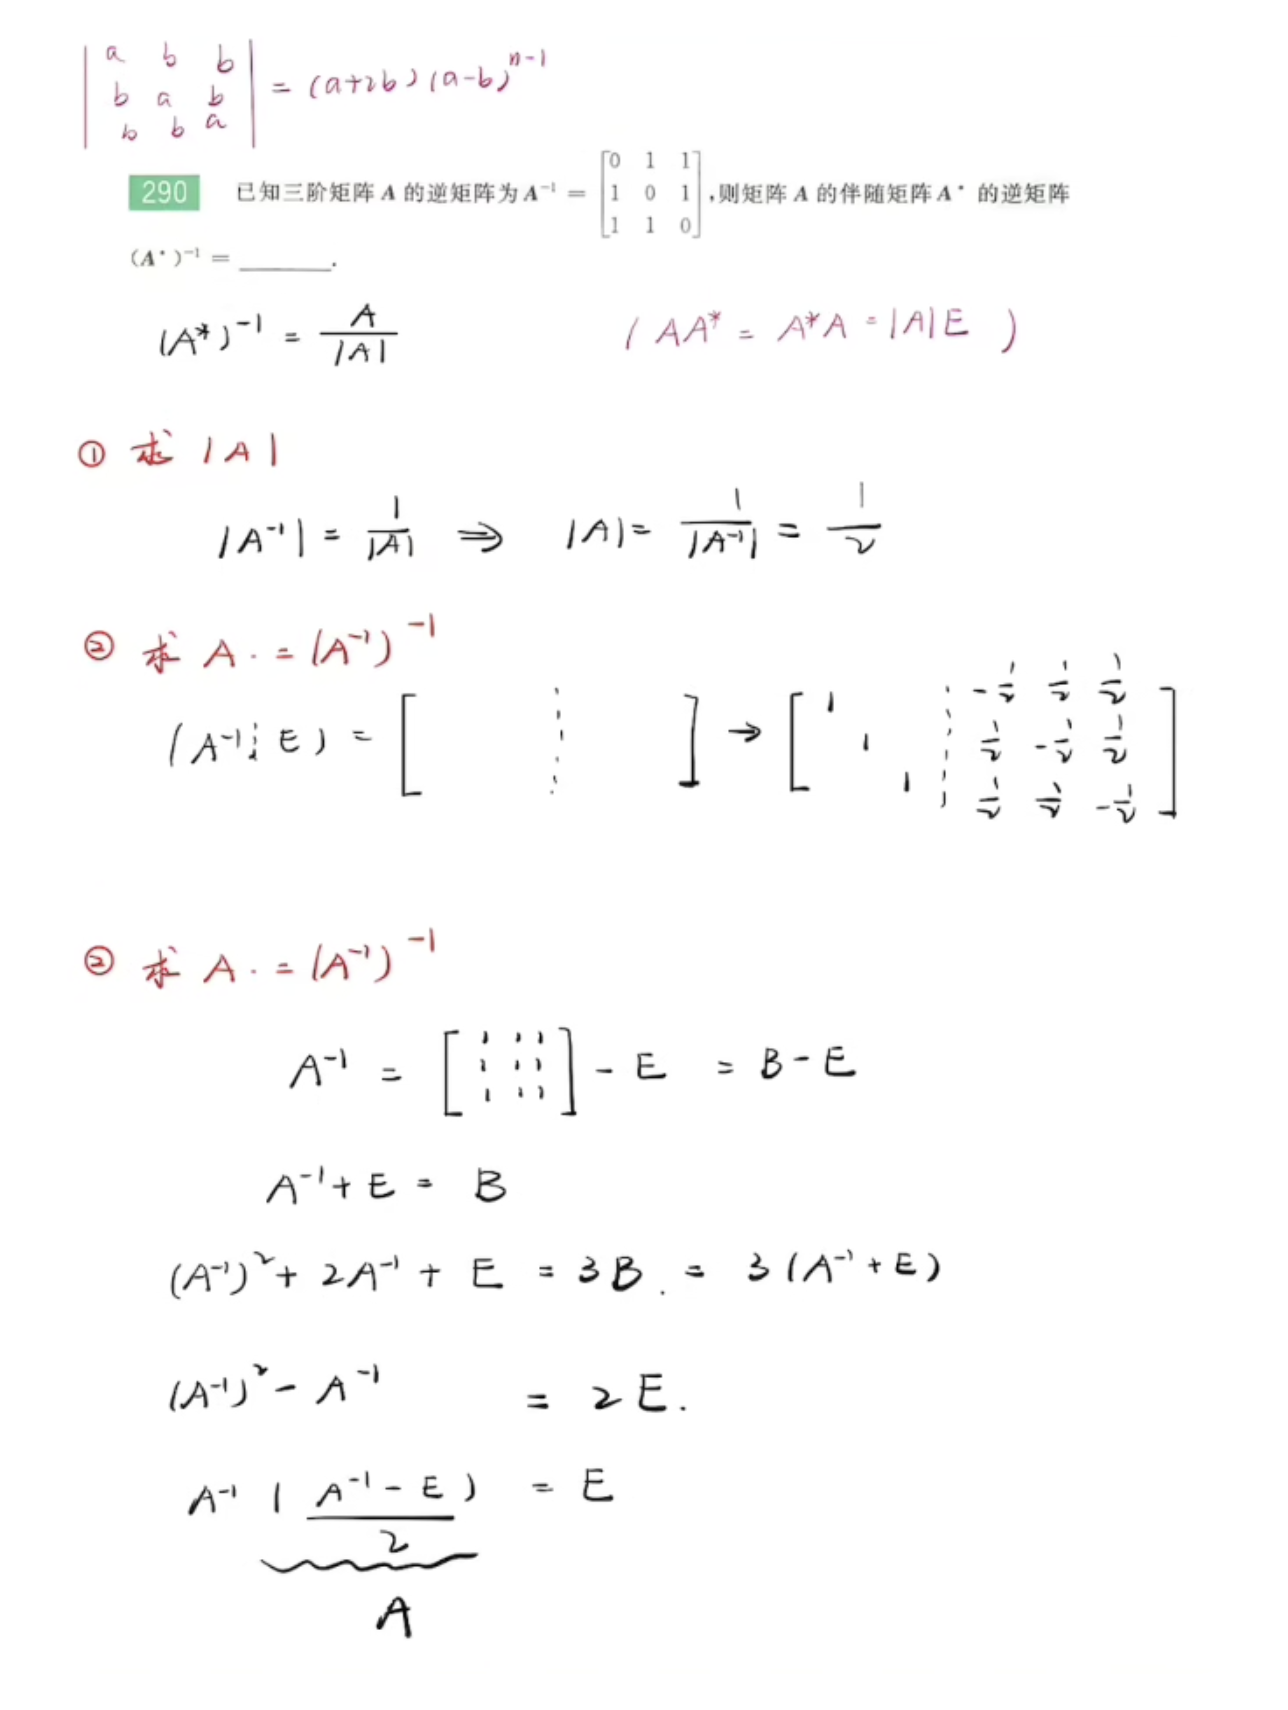 | a b b |
| b a b | = (a+2b)(a-b)^{n-1}
| b b a |
290 已知三阶矩阵 A 的逆矩阵为 A⁻¹ = [0 1 1; 1 0 1; 1 1 0],则矩阵 A 的伴随矩阵 A* 的逆矩阵
(A*)⁻¹ = ______.
(A*)⁻¹ = A/|A| (AA* = A*A = |A|E )
① 求 |A|
|A⁻¹| = 1/|A| ⇒ |A| = 1/|A⁻¹| = 1/2
② 求 A. = (A⁻¹)⁻¹
(A⁻¹⋮E) = [ ⋮ ] → [1 ⋮ -1/2 1/2 1/2; 1 ⋮ 1/2 -1/2 1/2; 1 ⋮ 1/2 1/2 -1/2]
② 求 A. = (A⁻¹)⁻¹
A⁻¹ = [1 1 1; 1 1 1; 1 1 1] - E = B - E
A⁻¹ + E = B
(A⁻¹)² + 2A⁻¹ + E = 3B. = 3(A⁻¹ + E)
(A⁻¹)² - A⁻¹ = 2E.
A⁻¹ ( (A⁻¹ - E)/2 ) = E
A